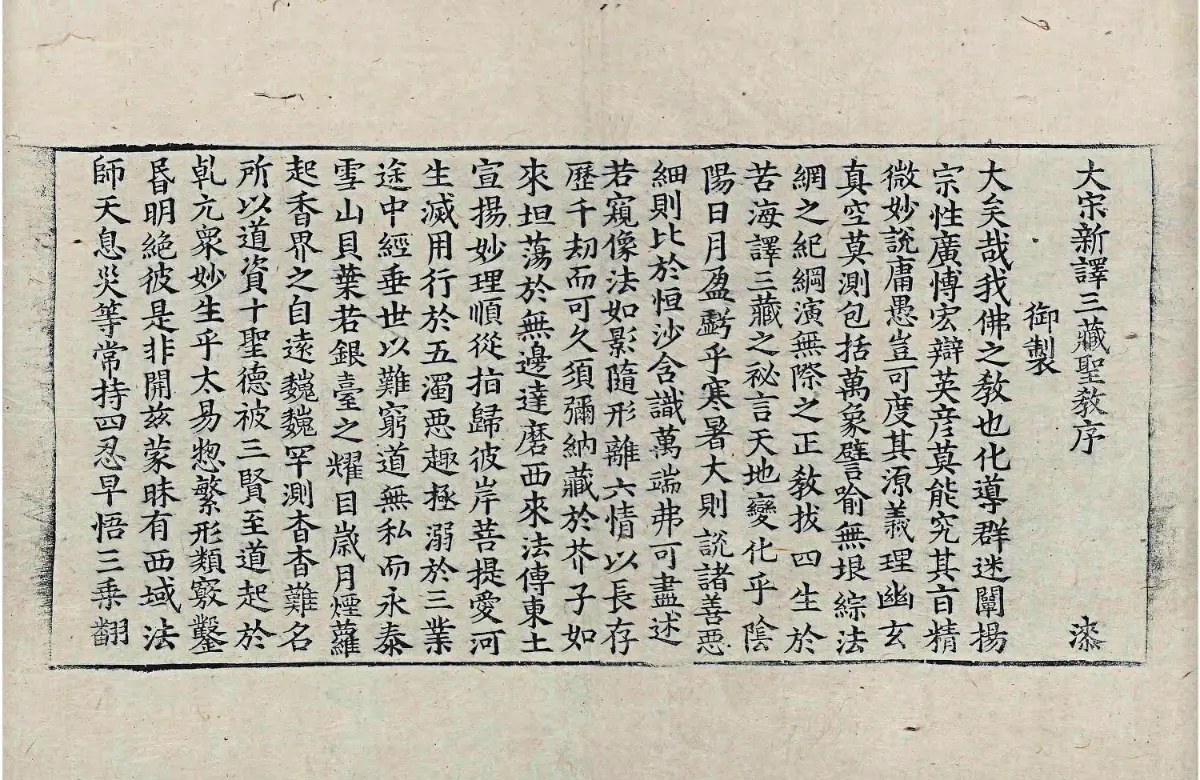 大宋新譯三藏聖教序 漆
御製
大矣哉我佛之教也化導群迷闡揚
宗性廣博宏辯英彦莫能究其㫖精
微妙說庸愚豈可度其源義理幽玄
真空莫測包括萬象譬喻無垠綜法
網之紀綱演無際之正教拔四生於
苦海譯三藏之祕言天地變化乎陰
陽日月盈虧乎寒暑大則說諸善惡
細則比於恒沙含識萬端弗可盡述
若窺像法如影隨形離六情以長存
歷千劫而可久須彌納藏於芥子如
來坦蕩於無邊達磨西來法傳東土
宣揚妙理順從指歸彼岸菩提愛河
生滅用行於五濁惡趣極溺於三業
途中經垂世以難窮道無私而永泰
雪山貝葉若銀臺之耀目歲月煙蘿
起香界之自遠巍巍罕測杳杳難名
所以道資十聖德被三賢至道起於
乹元衆妙生乎太易惣繁形類竅鑿
昬明絕彼是非開兹蒙昧有西域法
師天息災等常持四忍早悟三乗翻